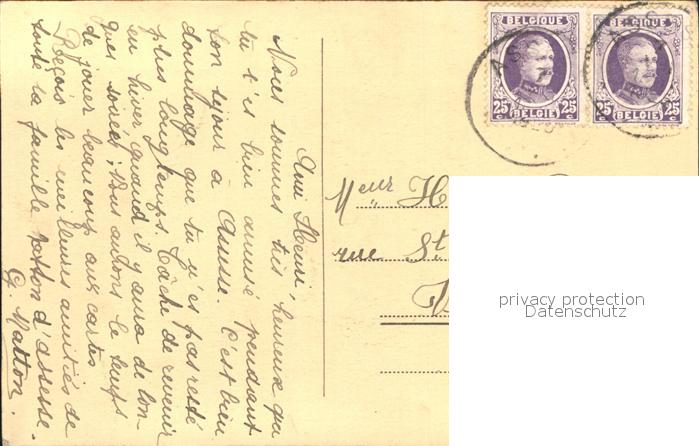 Ami Henri,
Nous sommes très heureux que
tu t'es bien amusé pendant
ton séjour à Assesse. C'est bien
dommage que tu n'es pas resté
plus longtemps. Tâche de revenir
en hiver quand il y aura de lon-
gues soirées; Nous aurons le temps
de jouer beaucoup aux cartes
Reçois les meilleures amitiés de
toute la famille Matton d'Assesse.
G. Matton.
BELGIQUE
25 25
BELGIË
BELGIQUE
25 25
BELGIË
Mr H
rue St
privacy protection
Datenschutz